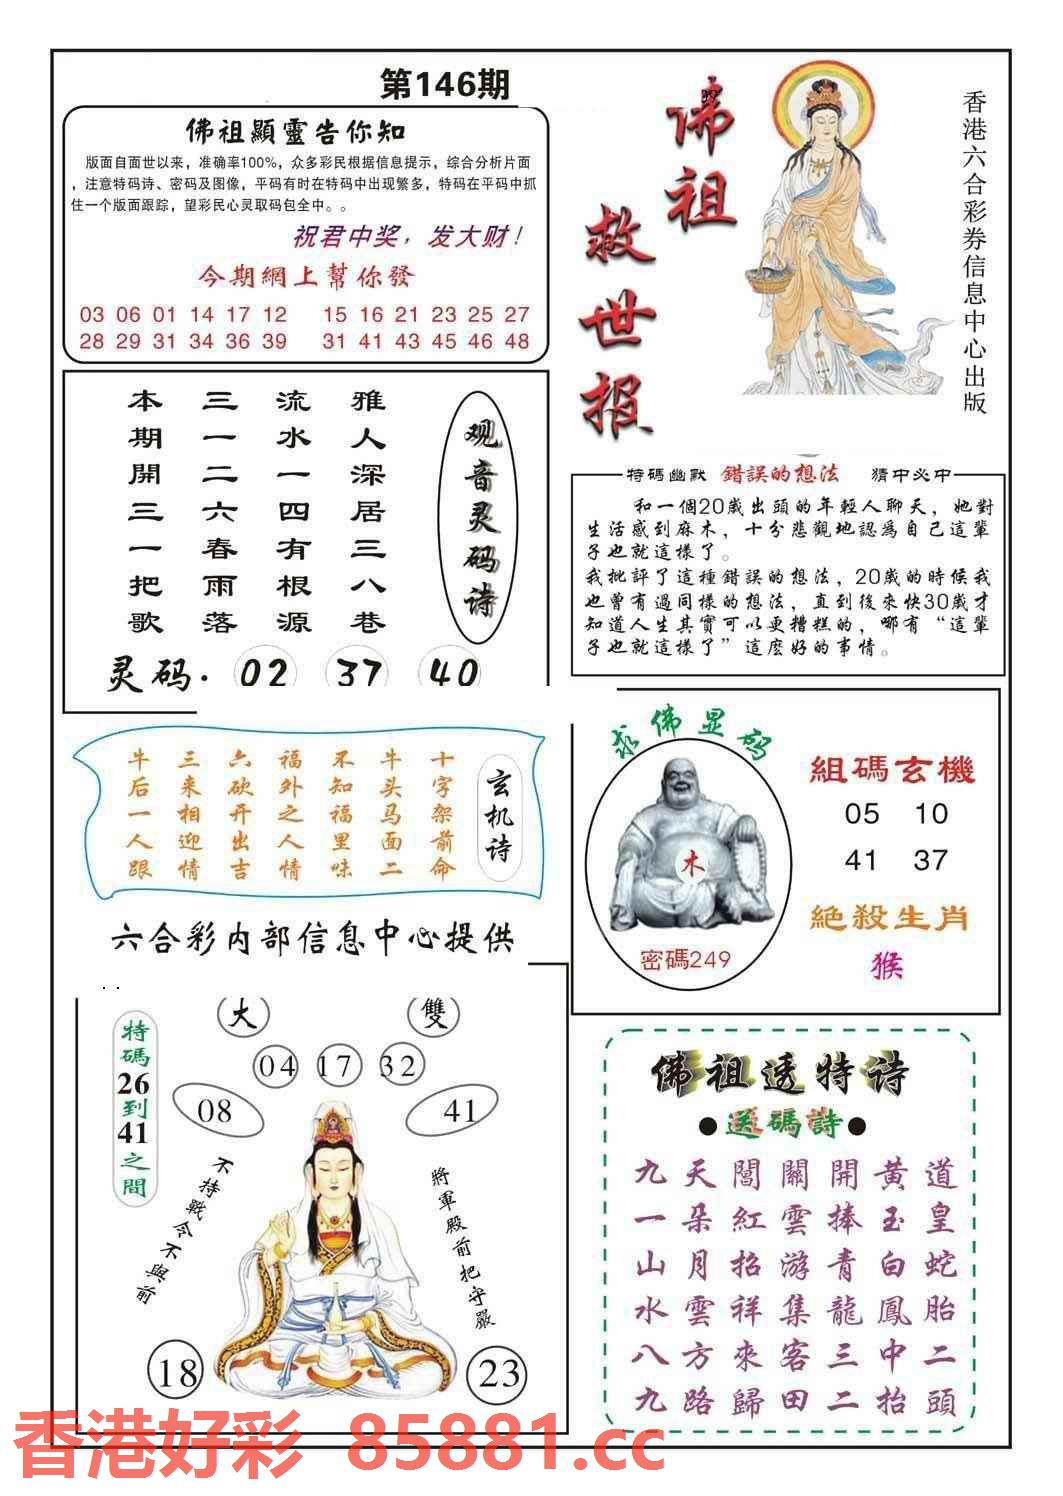 第146期
佛祖顯靈告你知
版面自面世以来，准确率100%，众多彩民根据信息提示，综合分析片面
，注意特码诗、密码及图像，平码有时在特码中出现繁多，特码在平码中抓
住一个版面跟踪，望彩民心灵取码包全中。。
祝君中奖，发大财！
今期網上幫你發
03 06 01 14 17 12 15 16 21 23 25 27
28 29 31 34 36 39 31 41 43 45 46 48
佛祖
救世报
香港六合彩券信息中心出版
观音灵码诗
雅人深居三八巷
流水一四有根源
三一二六春雨落
本期開三一把歌
灵码. 02 37 40
特碼幽默 錯誤的想法 猜中必中
和一個20歲出頭的年輕人聊天，她對
生活感到麻木，十分悲觀地認爲自己這輩
子也就這樣了。
我批評了這種錯誤的想法，20歲的時候我
也曾有過同樣的想法，直到後來快30歲才
知道人生其實可以更糟糕的，哪有“這輩
子也就這樣了”這麽好的事情。
玄机诗
十字架前命
牛头马面二
不知福里味
福外之人情
六砍开出吉
三来相迎情
牛后一人跟
六合彩内部信息中心提供
求佛显码
木
密碼249
組碼玄機
05 10
41 37
絕殺生肖
猴
特碼26到41之間
大 雙
04 17 32
08 41
不持戰令不與前
將軍殿前把守嚴
18 23
佛祖透特诗
●送碼詩●
九天閶關開黃道
一朵紅雲捧玉皇
山月招游青白蛇
水雲祥集龍鳳胎
八方來客三中二
九路歸田二抬頭
香港好彩 85881.cc